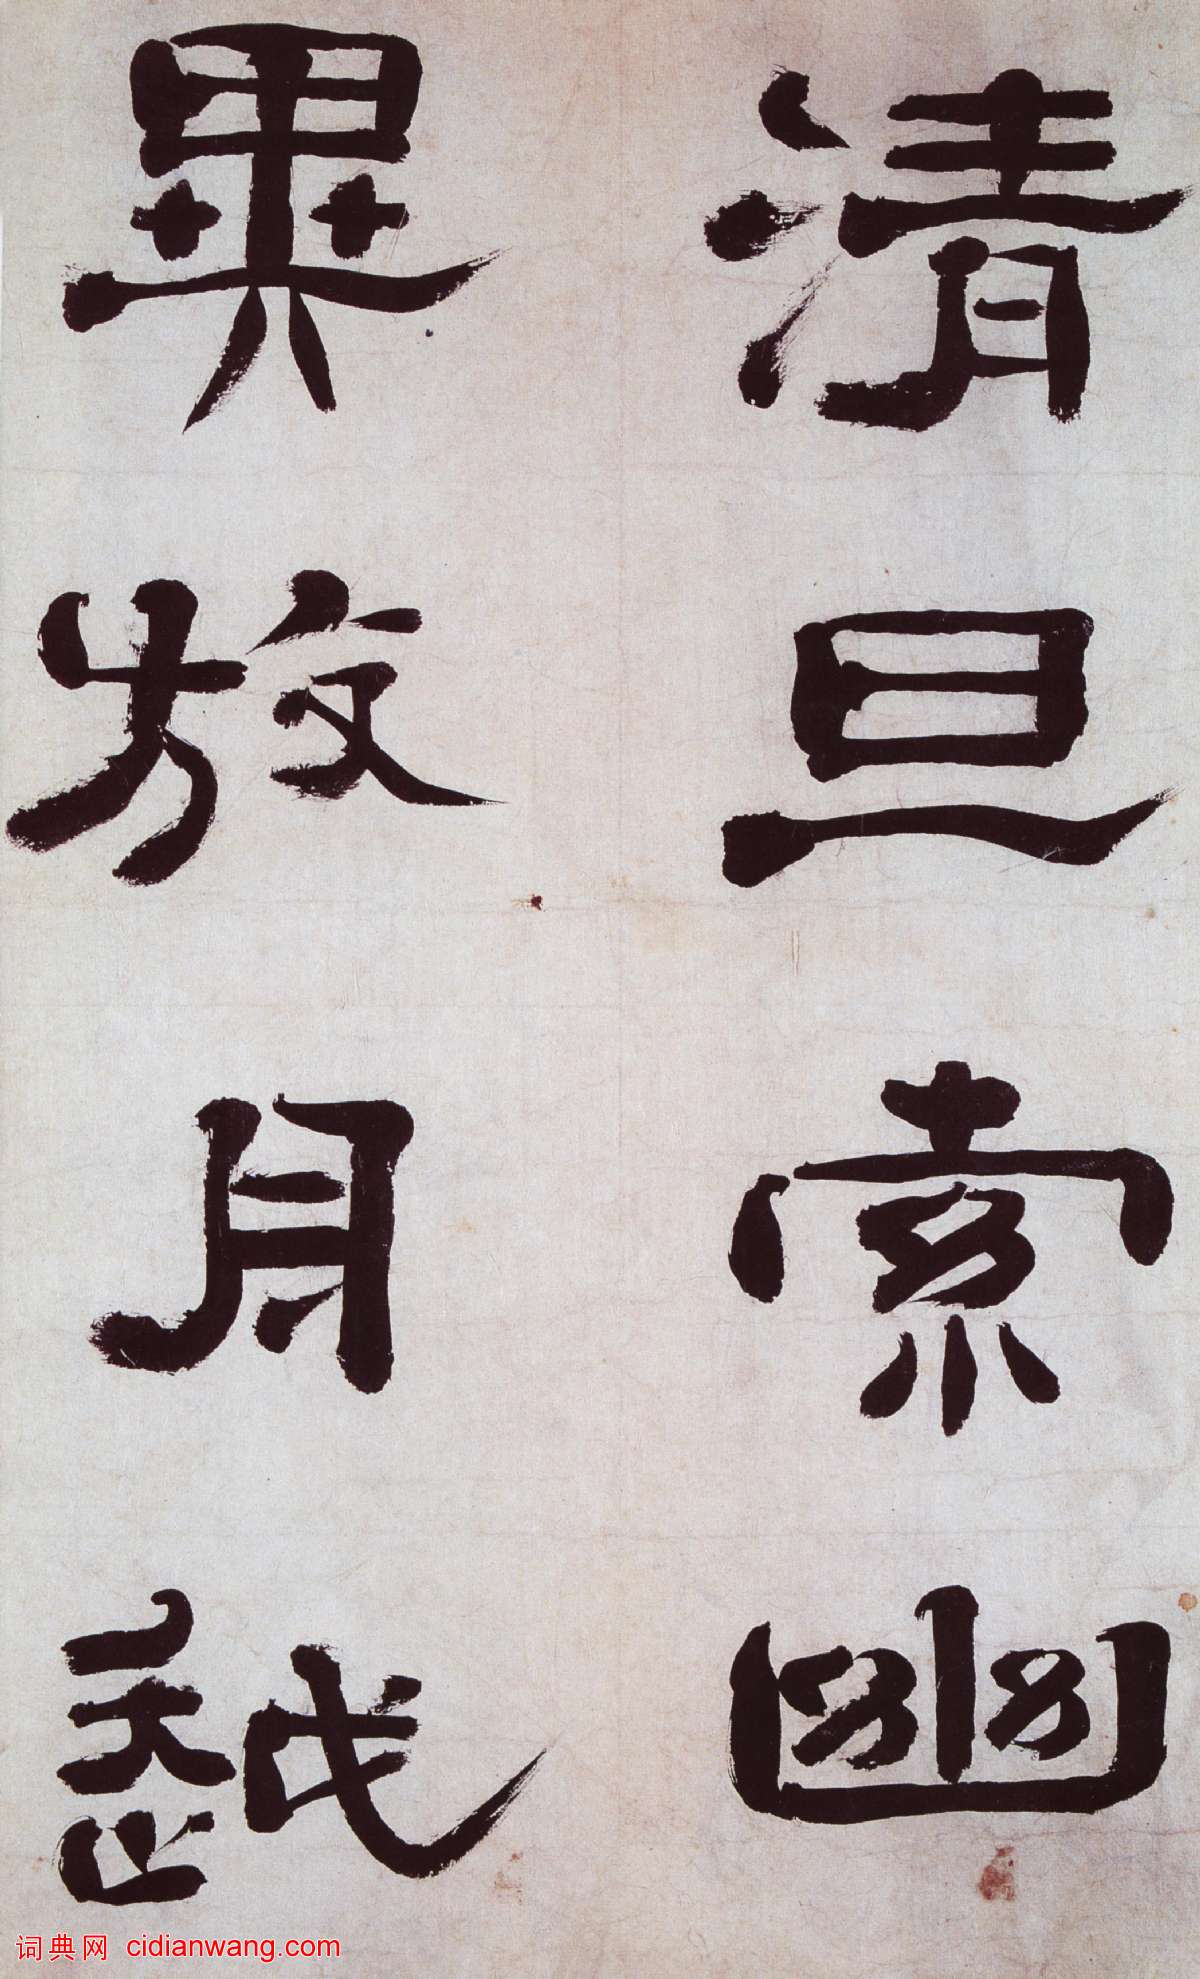 清旦索幽
異放舟越
词典网 cidianwang.com